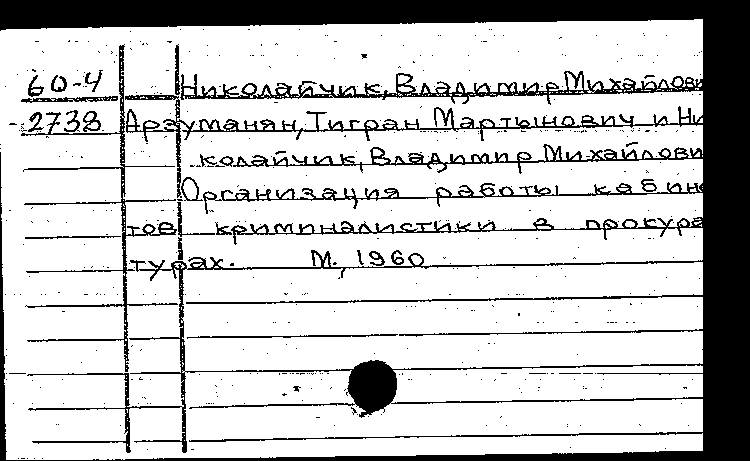 60-4 Николайчик, Владимир Михайлови
2738 Арзуманян, Тигран Мартынович и Ни
колайчик, Владимир Михайлови
Организация работы кабине
тов криминалистики в прокура
турах. М., 1960